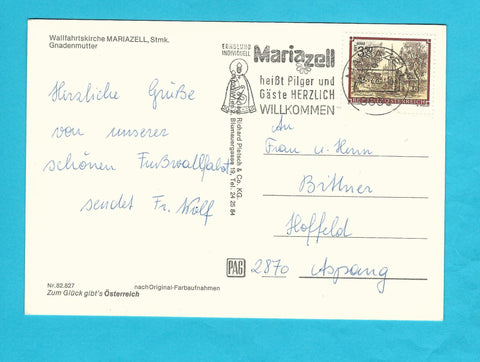 Wallfahrtskirche MARIAZELL, Stmk.
Gnadenmutter
ERHOLUNG
INDIVIDUELL
Mariazell
heißt Pilger und
Gäste HERZLICH
WILLKOMMEN
REPUBLIK ÖSTERREICH
Herzliche Grüße
von unserer
schönen Fußwallfahrt
sendet Fr. Wolf
Richard Pietsch & Co. KG.
2, Blumauergasse 19, Tel. 24 25 84
An
Frau u. Herrn
Bittner
Hoffeld
2870 Aspang
PAG
Nr. 82.827
nach Original-Farbaufnahmen
Zum Glück gibt's Österreich